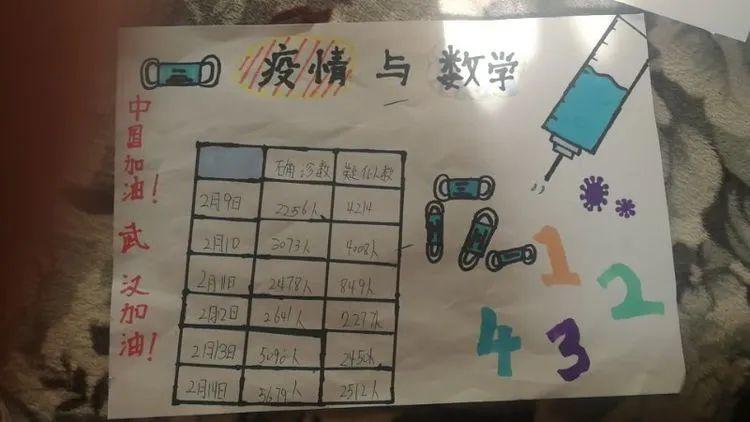 疫情与数学
中国加油！
武汉加油！
确诊数 疑似人数
2月9日 2256人 4214
2月10 3073人 4008人
2月11日 2478人 849人
2月12日 2641人 2277人
2月13日 5090人 2450人
2月14日 5679人 2512人
1
2
3
4